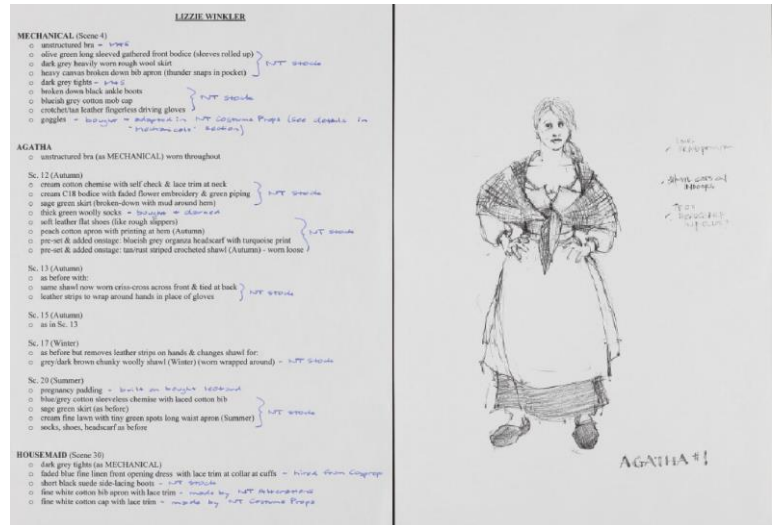 LIZZIE WINKLER
MECHANICAL (Scene 4)
o unstructured bra - M&S
o olive green long sleeved gathered front bodice (sleeves rolled up)
o dark grey heavily worn rough wool skirt
o heavy canvas broken down bib apron (thunder snaps in pocket)
NT Stock
o dark grey tights - M&S
o broken down black ankle boots
o blueish grey cotton mob cap
o crotchet/tan leather fingerless driving gloves
NT Stock
o goggles - bought + adapted in NT Costume Props (see details in 'Mechanicals' section)
AGATHA
o unstructured bra (as MECHANICAL) worn throughout
Sc. 12 (Autumn)
o cream cotton chemise with self check & lace trim at neck
o cream C18 bodice with faded flower embroidery & green piping
o sage green skirt (broken-down with mud around hem)
NT Stock
o thick green woolly socks - bought + dyed
o soft leather flat shoes (like rough slippers)
o peach cotton apron with printing at hem (Autumn)
o pre-set & added onstage: blueish grey organza headscarf with turquoise print
o pre-set & added onstage: tan/rust striped crocheted shawl (Autumn) - worn loose
NT Stock
Sc. 13 (Autumn)
o as before with:
o same shawl now worn criss-cross across front & tied at back
o leather strips to wrap around hands in place of gloves
NT Stock
Sc. 15 (Autumn)
o as in Sc. 13
Sc. 17 (Winter)
o as before but removes leather strips on hands & changes shawl for:
o grey/dark brown chunky woolly shawl (Winter) (worn wrapped around) - NT Stock
Sc. 20 (Summer)
o pregnancy padding - built on bought leotard
o blue/grey cotton sleeveless chemise with laced cotton bib
o sage green skirt (as before)
o cream fine lawn with tiny green spots long waist apron (Summer)
o socks, shoes, headscarf as before
NT Stock
HOUSEMAID (Scene 30)
o dark grey tights (as MECHANICAL)
o faded blue fine linen front opening dress with lace trim at collar at cuffs - hired from Cosprop
o short black suede side-lacing boots - NT Stock
o fine white cotton bib apron with lace trim - made by NT Alterations
o fine white cotton cap with lace trim - made by NT Costume Props
AGATHA #1